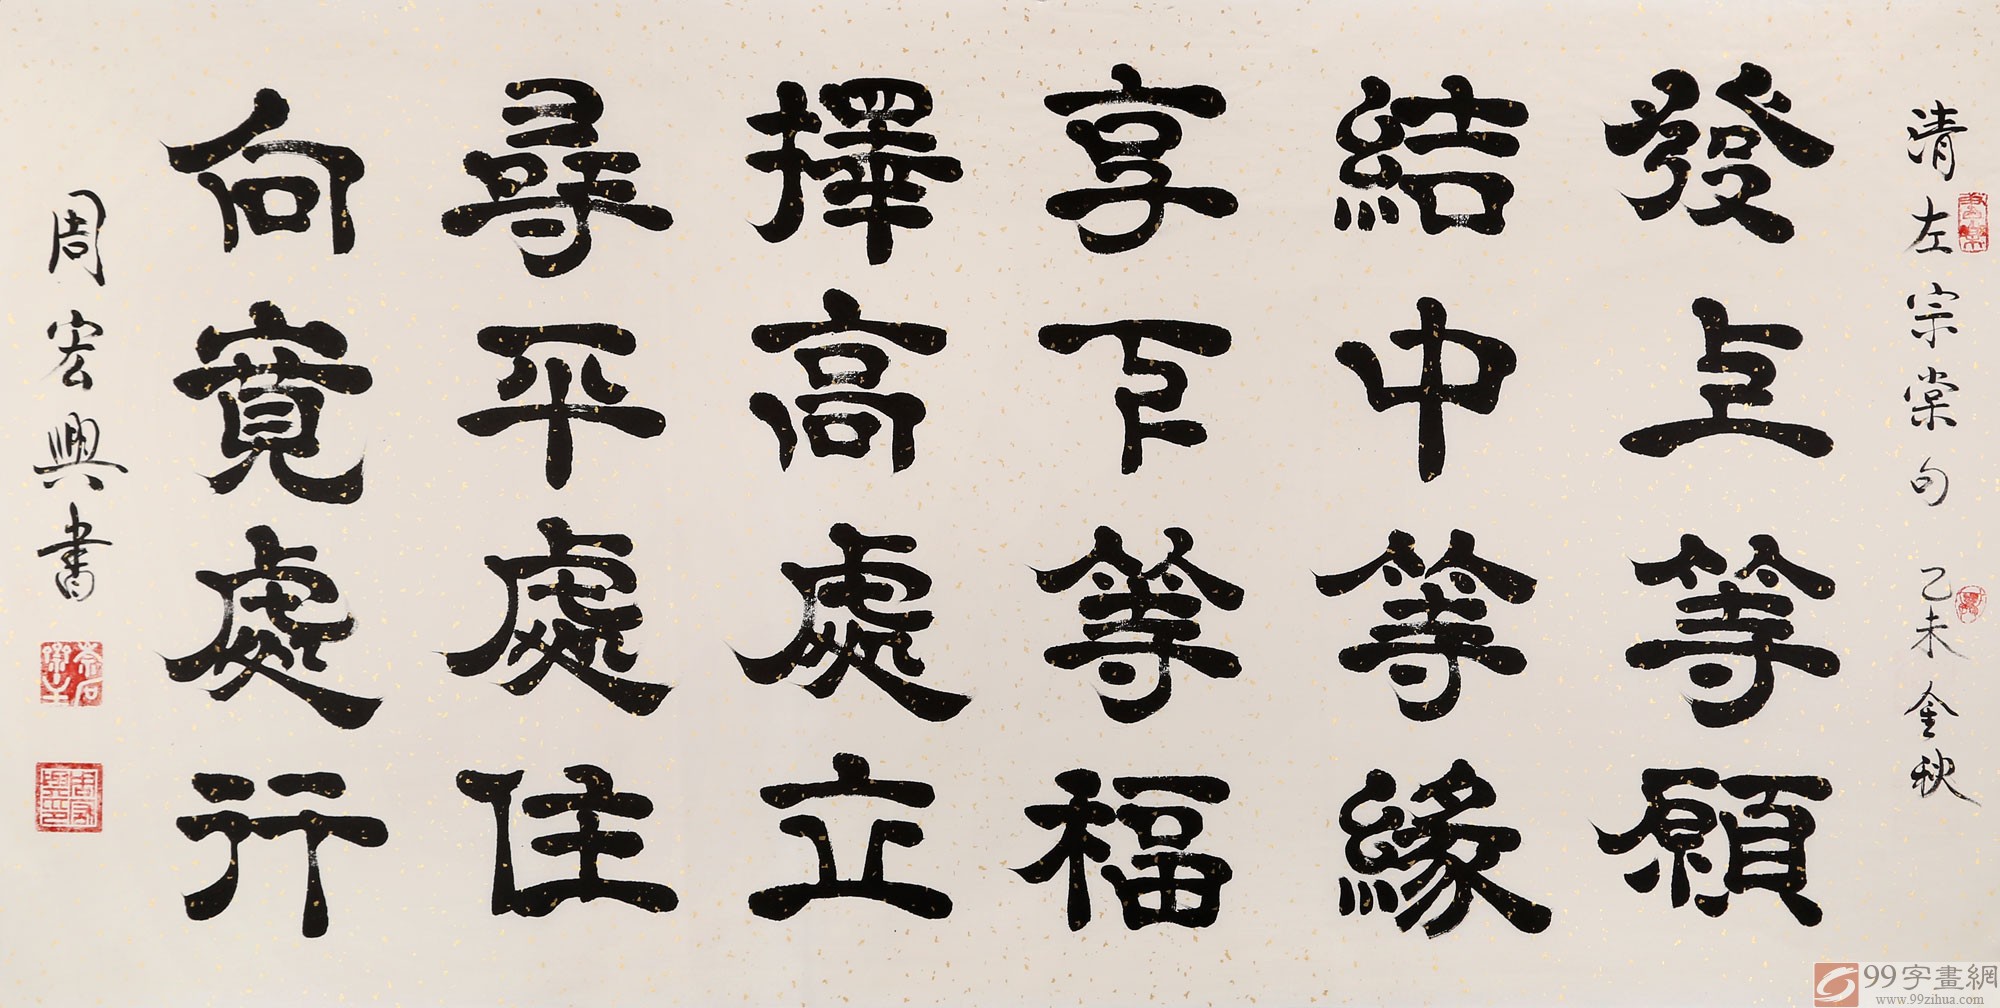 清左宗棠句 乙未金秋
發上等願
結中等緣
享下等福
擇高處立
尋平處住
向寬處行
周宏興書
99字畫網
www.99zihua.com